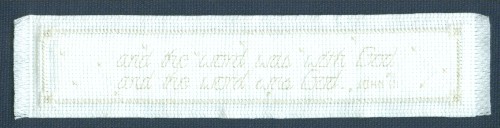 and the word was with God
and the word was God.